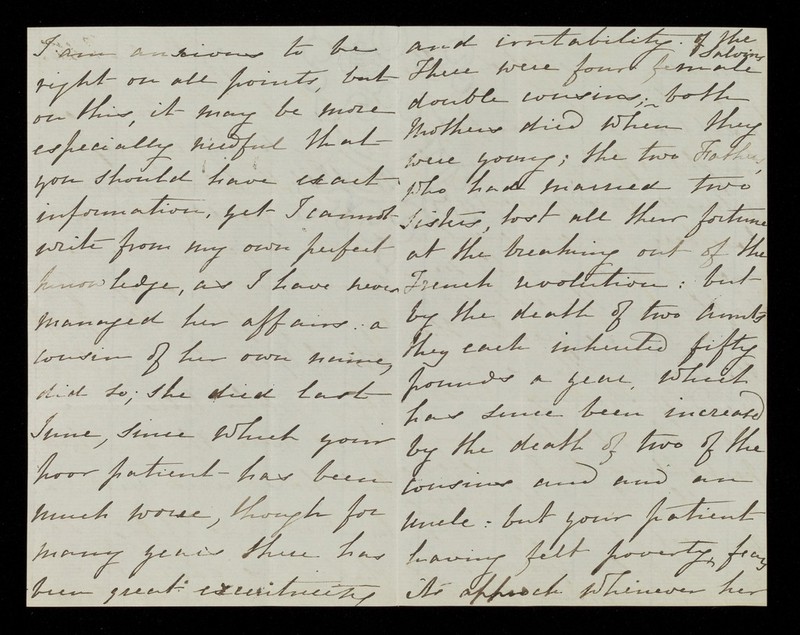 I am anxious to be
right on all points, but
on this, it may be more
especially needful that
you should have exact
information, yet I cannot
write from my own perfect
knowledge, as I have never
managed her affairs: a
cousin of her own name,
did so; she died last
June, since which your
poor patient has been
much worse, though for
many years there has
been great excentricity
and irritability. of the
Salvins
There were four female
double cousins; both
Mothers died when they
were young; the two Fathers,
who had married two
Sisters, lost all their fortune
at the breaking out of the
French revolution: but
by the death of two Aunts
they each inherited fifty
pounds a year, which
has since been increased
by the death of two of the
cousins and and an
Uncle: but your patient
having felt poverty, fears
its approch whenever her